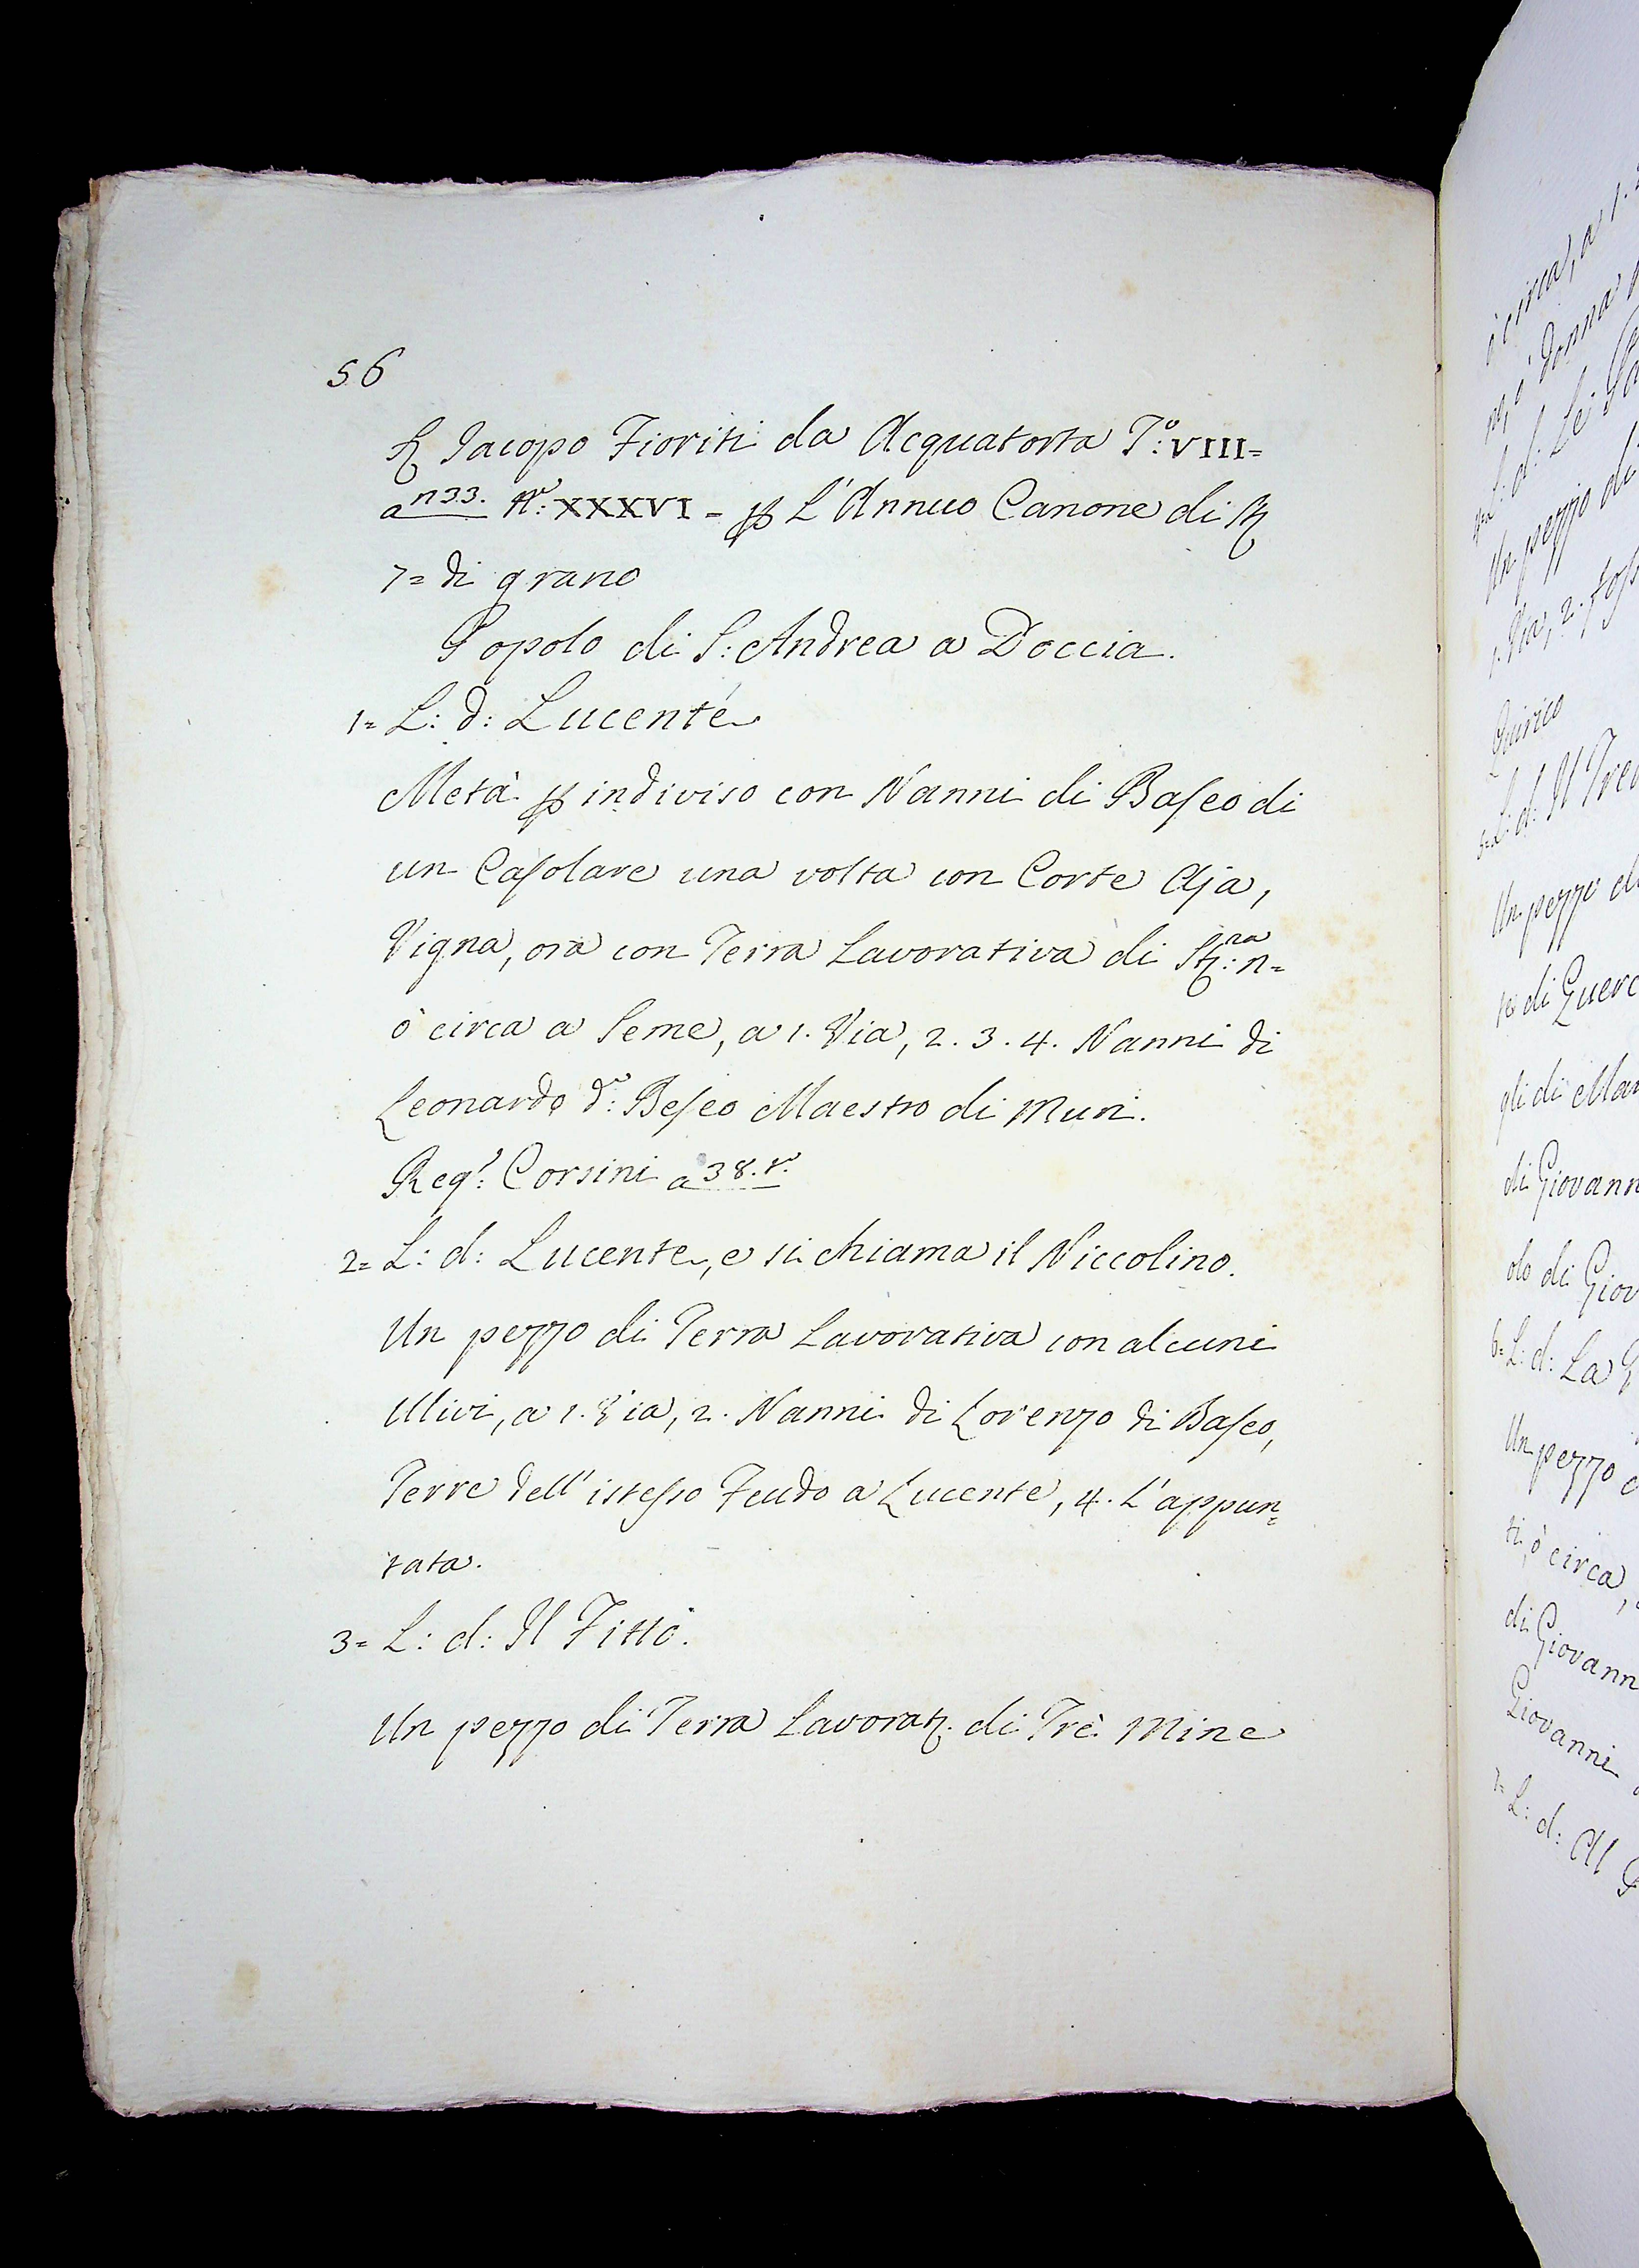 56
Jacopo Fioriti da Acquatorta T.º: VIII=
a n33. Nº: XXXVI = L'Annuo Canone di
7= di grano
Popolo di S: Andrea a Doccia.
1= L: d: Lucente
Metà indiviso con Nanni di Baseo di
un Casolare una volta con Corte Aja,
Vigna, ora con Terra Lavorativa di
ò circa a Seme, a 1. Via, 2. 3. 4. Nanni di
Leonardo d.º: Beseo Maestro di Muri.
Reg.º: Corsini a 38. t.º
2= L: d: Lucente, e si chiama il Niccolino.
Un pezzo di Terra Lavorativa con alcuni
Ulivi, a 1. Via, 2. Nanni di Lorenzo di Baseo,
Terre dell' istesso Feudo a Lucente, 4. L'appun=
tata.
3= L: d: Il Fitto.
Un pezzo di Terra Lavorat. di Trè Mine
ò circa, a 1.
Donna
L: d: Le
Un pezzo di
1. Via, 2. foss
Quirico
5= L: d: Il Tre
Un pezzo di
re di Querc
gli di Mar
di Giovann
do di Giov
6= L: d: La
Un pezzo
ti, ò circa,
di Giovann
Giovanni
7= L: d: Al